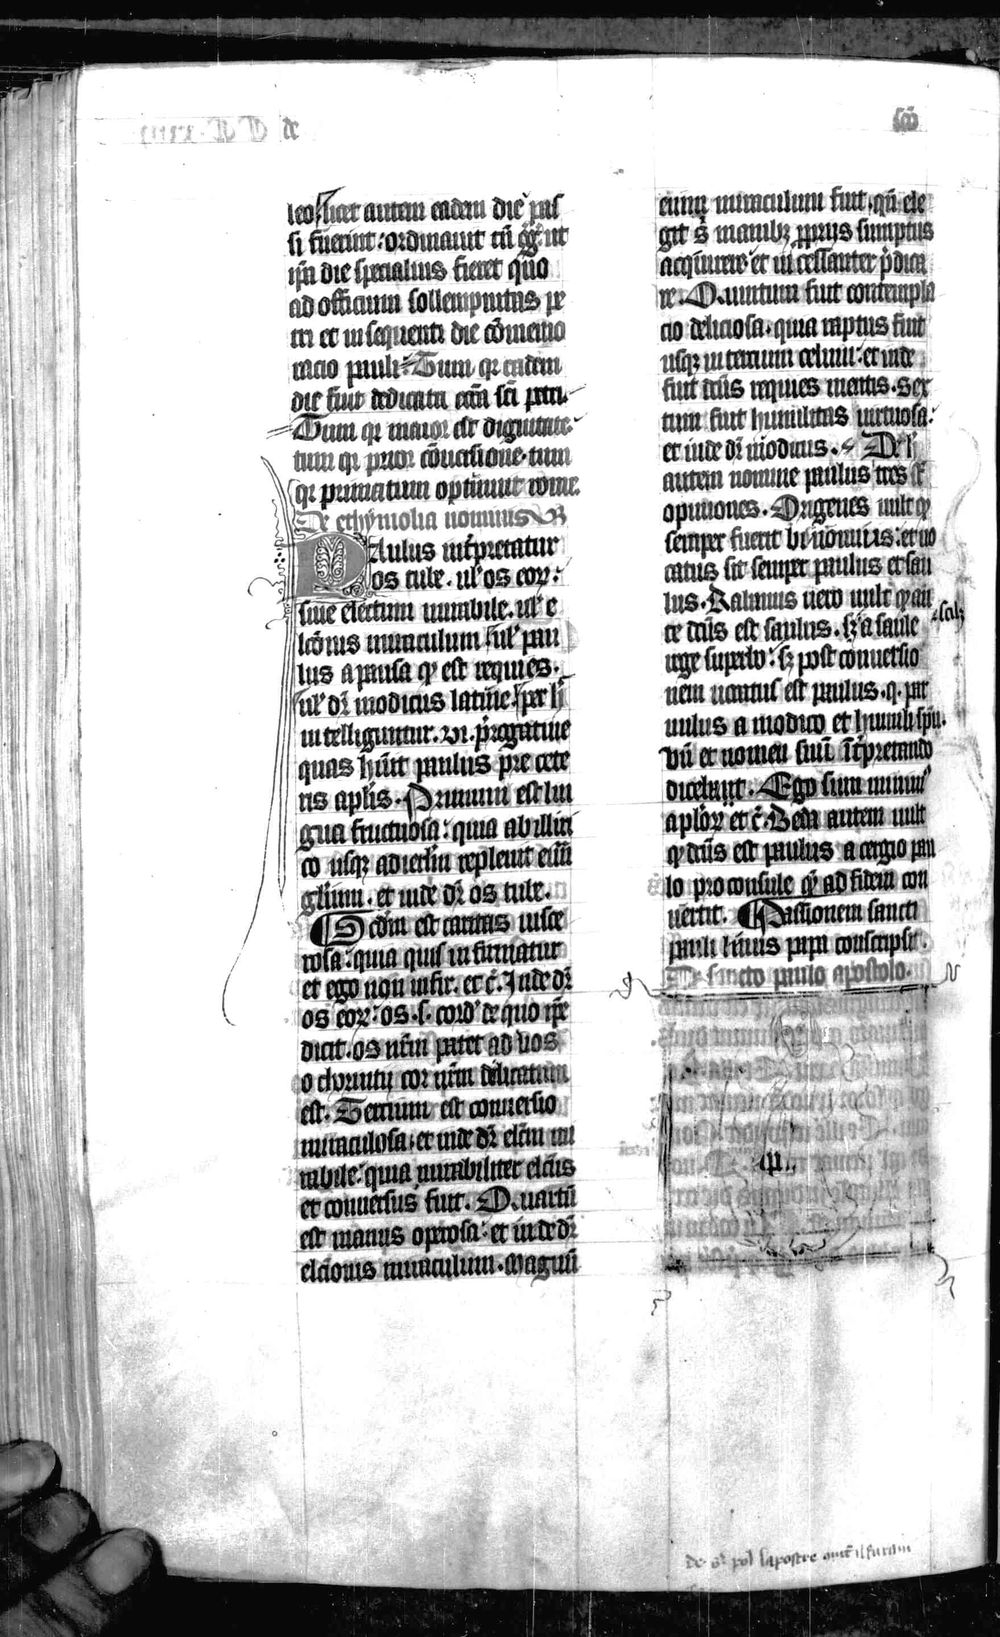 de
scō
leo / licet autem eadem die pas
si fuerint: ordinauit tn̄ gg̾. ut
ip̄a die specialius fieret quo
ad officium sollempnitas pe
tri et in sequenti die cōmemo
racio pauli Tum qꝛ eadem
die fuit dedicata ecc̄a sc̄i petri.
Tum qꝛ maior est dignitate
tum qꝛ prior cōuersione. tum
qꝛ primatum optinuit rome.
De ethymolia nominis
Paulus int̾pretatur
os tule. ul̾ os eoꝝ.
siue electum mirabile. ul̾ e
lcōnis miraculum / ul̾ pau
lus a pausa qđ est requies.
ul̾ dr̄ modicus latine. / per h̾
intelliguntur. vi. p̄rogatiue
quas hūit paulus pre cete
ris apl̄is. Primum est lin
gua fructuosa: quia ab illiri
co usqꝫ ad ierl̄m repleuit euā
gl̄ium. et inde dr̄ os tule.
Scd̄m est caritas uisce
rosa: quia quis infirmatur
et ego non infir. et c̄. Inde dr̄
os eoꝝ: os .s. cord̾ de quo ip̄e
dicit. os nr̄m patet ad vos
o chorintij cor nr̄m dilatatum
est. Tercium est conuersio
miraculosa: et inde dr̄ elc̄m mi
rabile: quia mirabiliter elc̄us
et conuersus fuit. Quartū
est manus op̄rosa: et inde dr̄
elcionis miraculum. Magnū
enim miraculum fuit. qn̄ ele
git s̄ manibꝫ ꝓprijs sumptus
acquirere et incessanter p̄dica
re. Quintum fuit contempla
cio deliciosa. quia raptus fuit
usqꝫ in tercium celum: et inde
fuit dc̄us requies mentis. Sex
tum fuit humilitas uirtuosa.
et inde dr̄ modicus. De h̾
autem nomine paulus tres s̄t
opiniones. Origenes uult qđ
semper fuerit binōmius: et uo
catus sit semper paulus et sau
lus. Rabanus uero uult qđ an
te dc̄us est saulus. sꝫ a saule
rege superbo: sꝫ post conuersio
nem uocatus est paulus. q. par
uulus a modico et humili spū.
Vn̄ et nomen suū īt̾pretando
dicebat. Ego sum minim̾
aploꝝ et c̄. Beda autem uult
qđ dc̄us est paulus a cergio pau
lo proconsule qꝫ ad fidem con
uertit. Passionem sancti
pauli linus papa conscripsit.
De sancto paulo apostolo.
.p.
de st pol lapostre